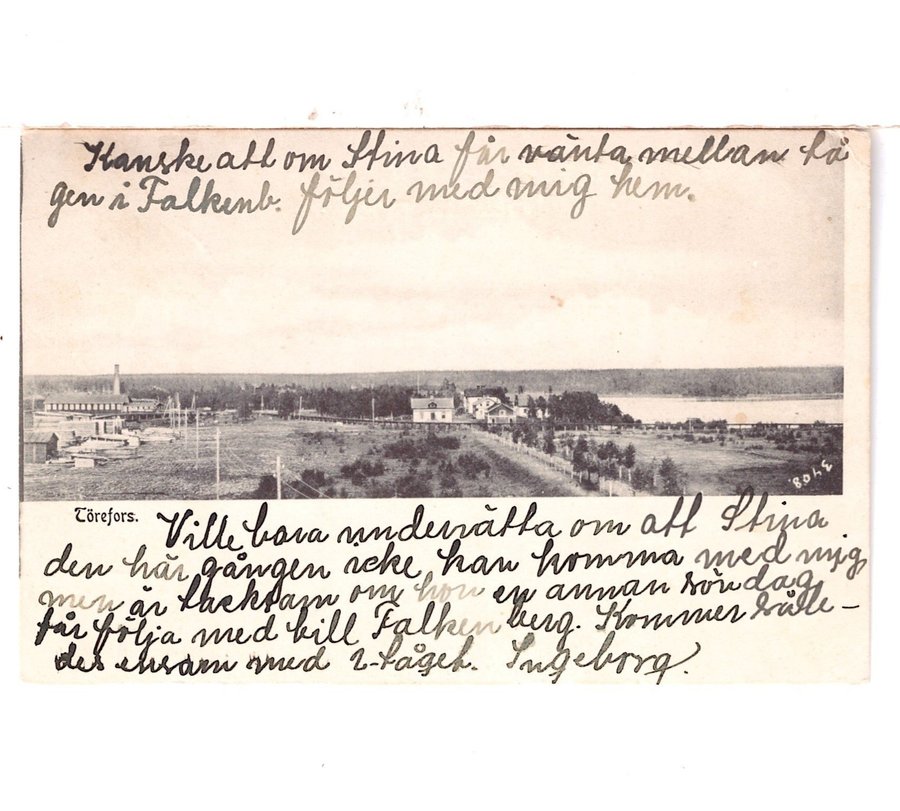 Kanske att om Stina får vänta mellan tå
gen i Falkenb. följer med mig hem.
3408.
Törefors.
Ville bara underrätta om att Stina
den här gången icke kan komma med mig
men är tacksam om hon en annan söndag
får följa med till Falkenberg. Kommer såle-
des ensam med 2-tåget. Ingeborg.